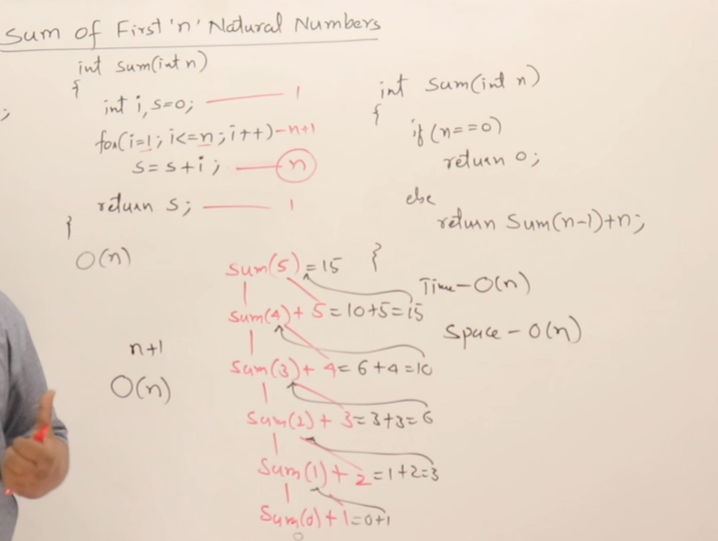 Sum of First 'n' Natural Numbers
int sum(int n)
{
int i, s=0; 1
for(i=1; i<=n; i++) - n+1
s=s+i; n
return s; 1
}
O(n)
n+1
O(n)
;
int sum(int n)
{
if(n==0)
return 0;
else
return Sum(n-1)+n;
}
Time-O(n)
Space-O(n)
Sum(5)=15
Sum(4)+5=10+5=15
Sum(3)+4=6+4=10
Sum(2)+3=3+3=6
Sum(1)+2=1+2=3
Sum(0)+1=0+1
0